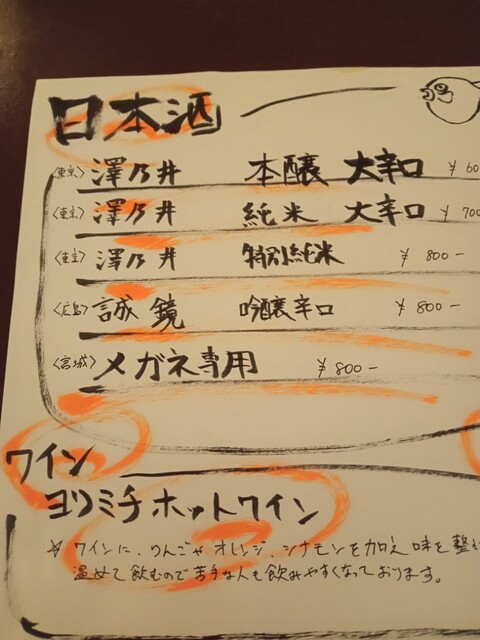 日本酒
〈東京〉 澤乃井 本醸 大辛口 ¥60
〈東京〉 澤乃井 純米 大辛口 ¥700
〈東京〉 澤乃井 特別純米 ¥800-
〈広島〉 誠鏡 吟醸辛口 ¥800-
〈宮城〉 メガネ専用 ¥800-
ワイン
ヨリミチホットワイン
☆ ワインに、りんごやオレンジ、シナモンを加え 味を整え
温めて飲むので苦手な人も飲みやすくなっております。